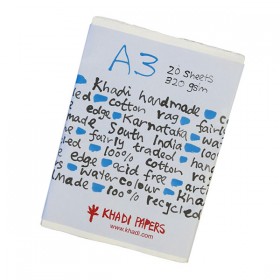 A3
20 sheets
320 gsm
Khadi handmade
cotton rag fairly
edge Karnataka
made South India
fairly traded
100% cotton
edge acid free
watercolour
made 100% recycled
KHADI PAPERS
www.khadi.com